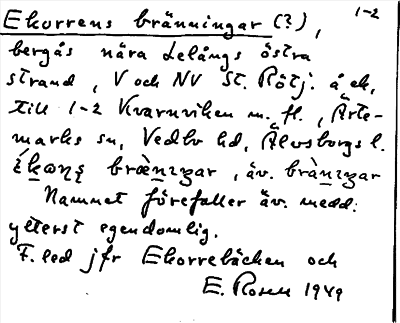 1-2
Ekorrens bränningar (?),
bergås nära Lelångs östra
strand, V och NV St. Rötj. å ek,
till 1-2 Kvarnviken m. fl., Ärte-
marks sn, Vedbo hd, Älvsborgs l.
bræ̀nıŋar, äv. brànıŋar
Namnet förefaller äv. medd.
ytterst egendomlig.
F. led jfr Ekorrebäcken och
E. Rosell 1949